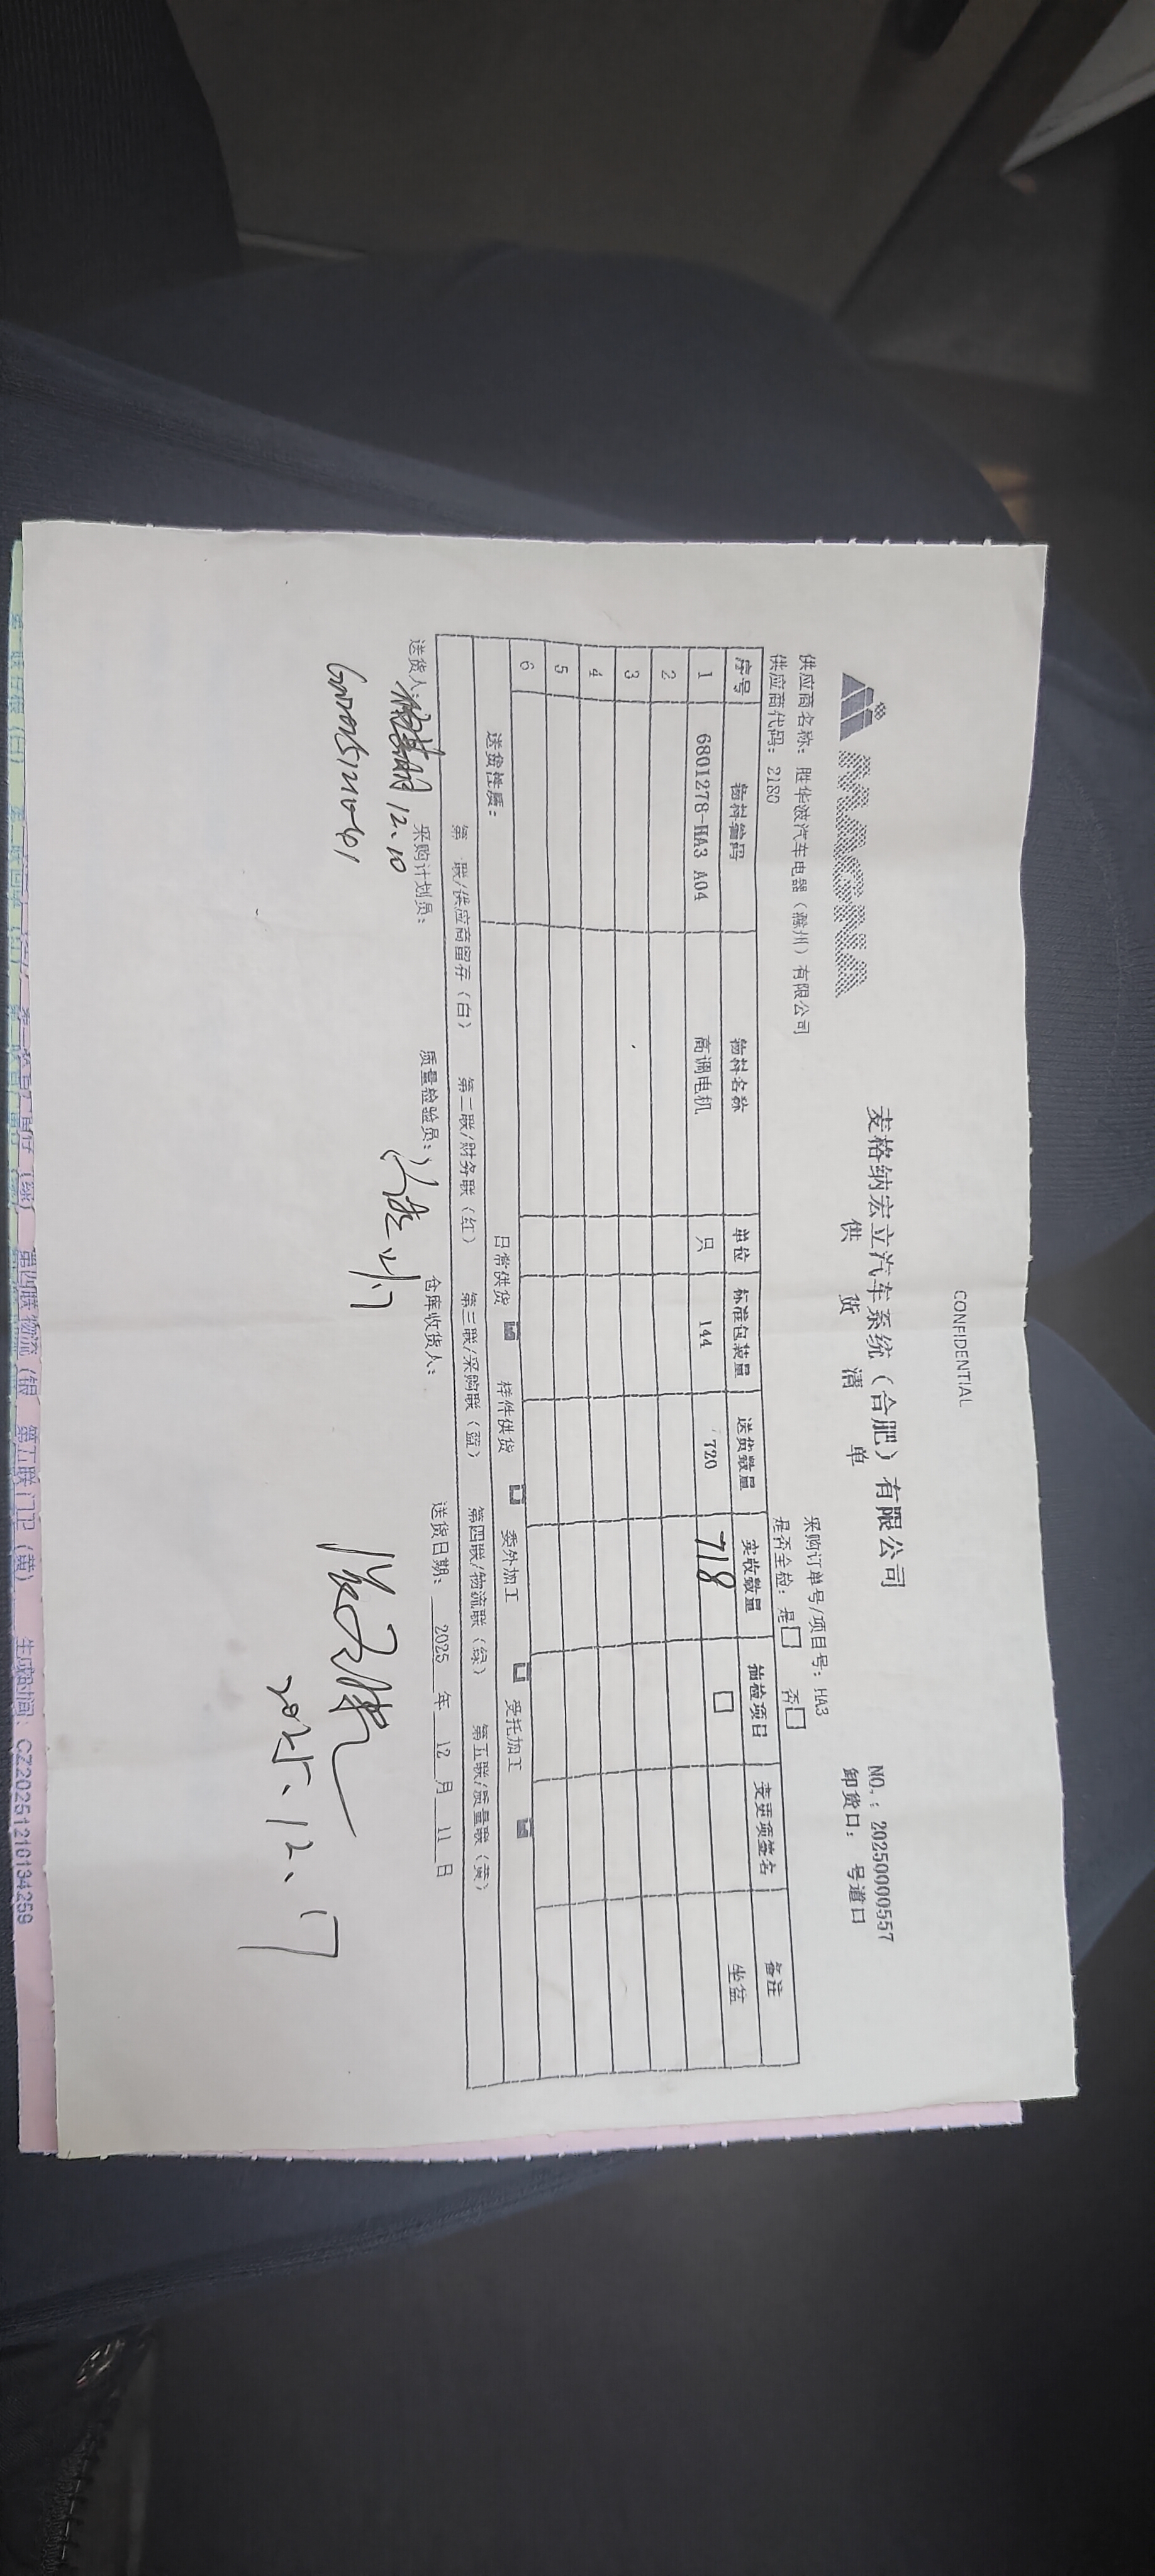 CONFIDENTIAL
MAGNA
麦格纳宏立汽车系统（合肥）有限公司
供 货 清 单
NO.：20250000557
卸货口： 号道口
供应商名称：胜华波汽车电器（滁州）有限公司
采购订单号/项目号：HA3
供应商代码：2180
是否全检：是□ 否□
序号 物料编码 物料名称 单位 标准包装量 送货数量 实收数量 抽检项目 变更项签名 备注
1 6801278-HA3 A04 高调电机 只 144 720 718 □ 坐盆
2
3
4
5
6
送货性质： 日常供货 样件供货 □ 委外加工 □ 受托加工
第 联/供应商留存（白） 第二联/财务联（红） 第三联/采购联（蓝） 第四联/物流联（绿） 第五联/质量联（黄）
送货人： 12.10 采购计划员： 质量检验员： 仓库收货人： 送货日期： 2025 年 12 月 11 日
2025.12.17
第四联物流（银 第五联门卫（黄） 生成时间：CZ20251210134259